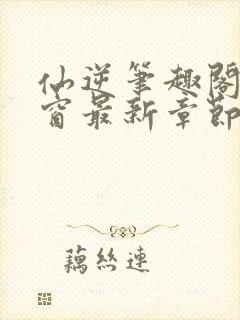 仙逆筆趣閣
窗最新章節
藕絲連